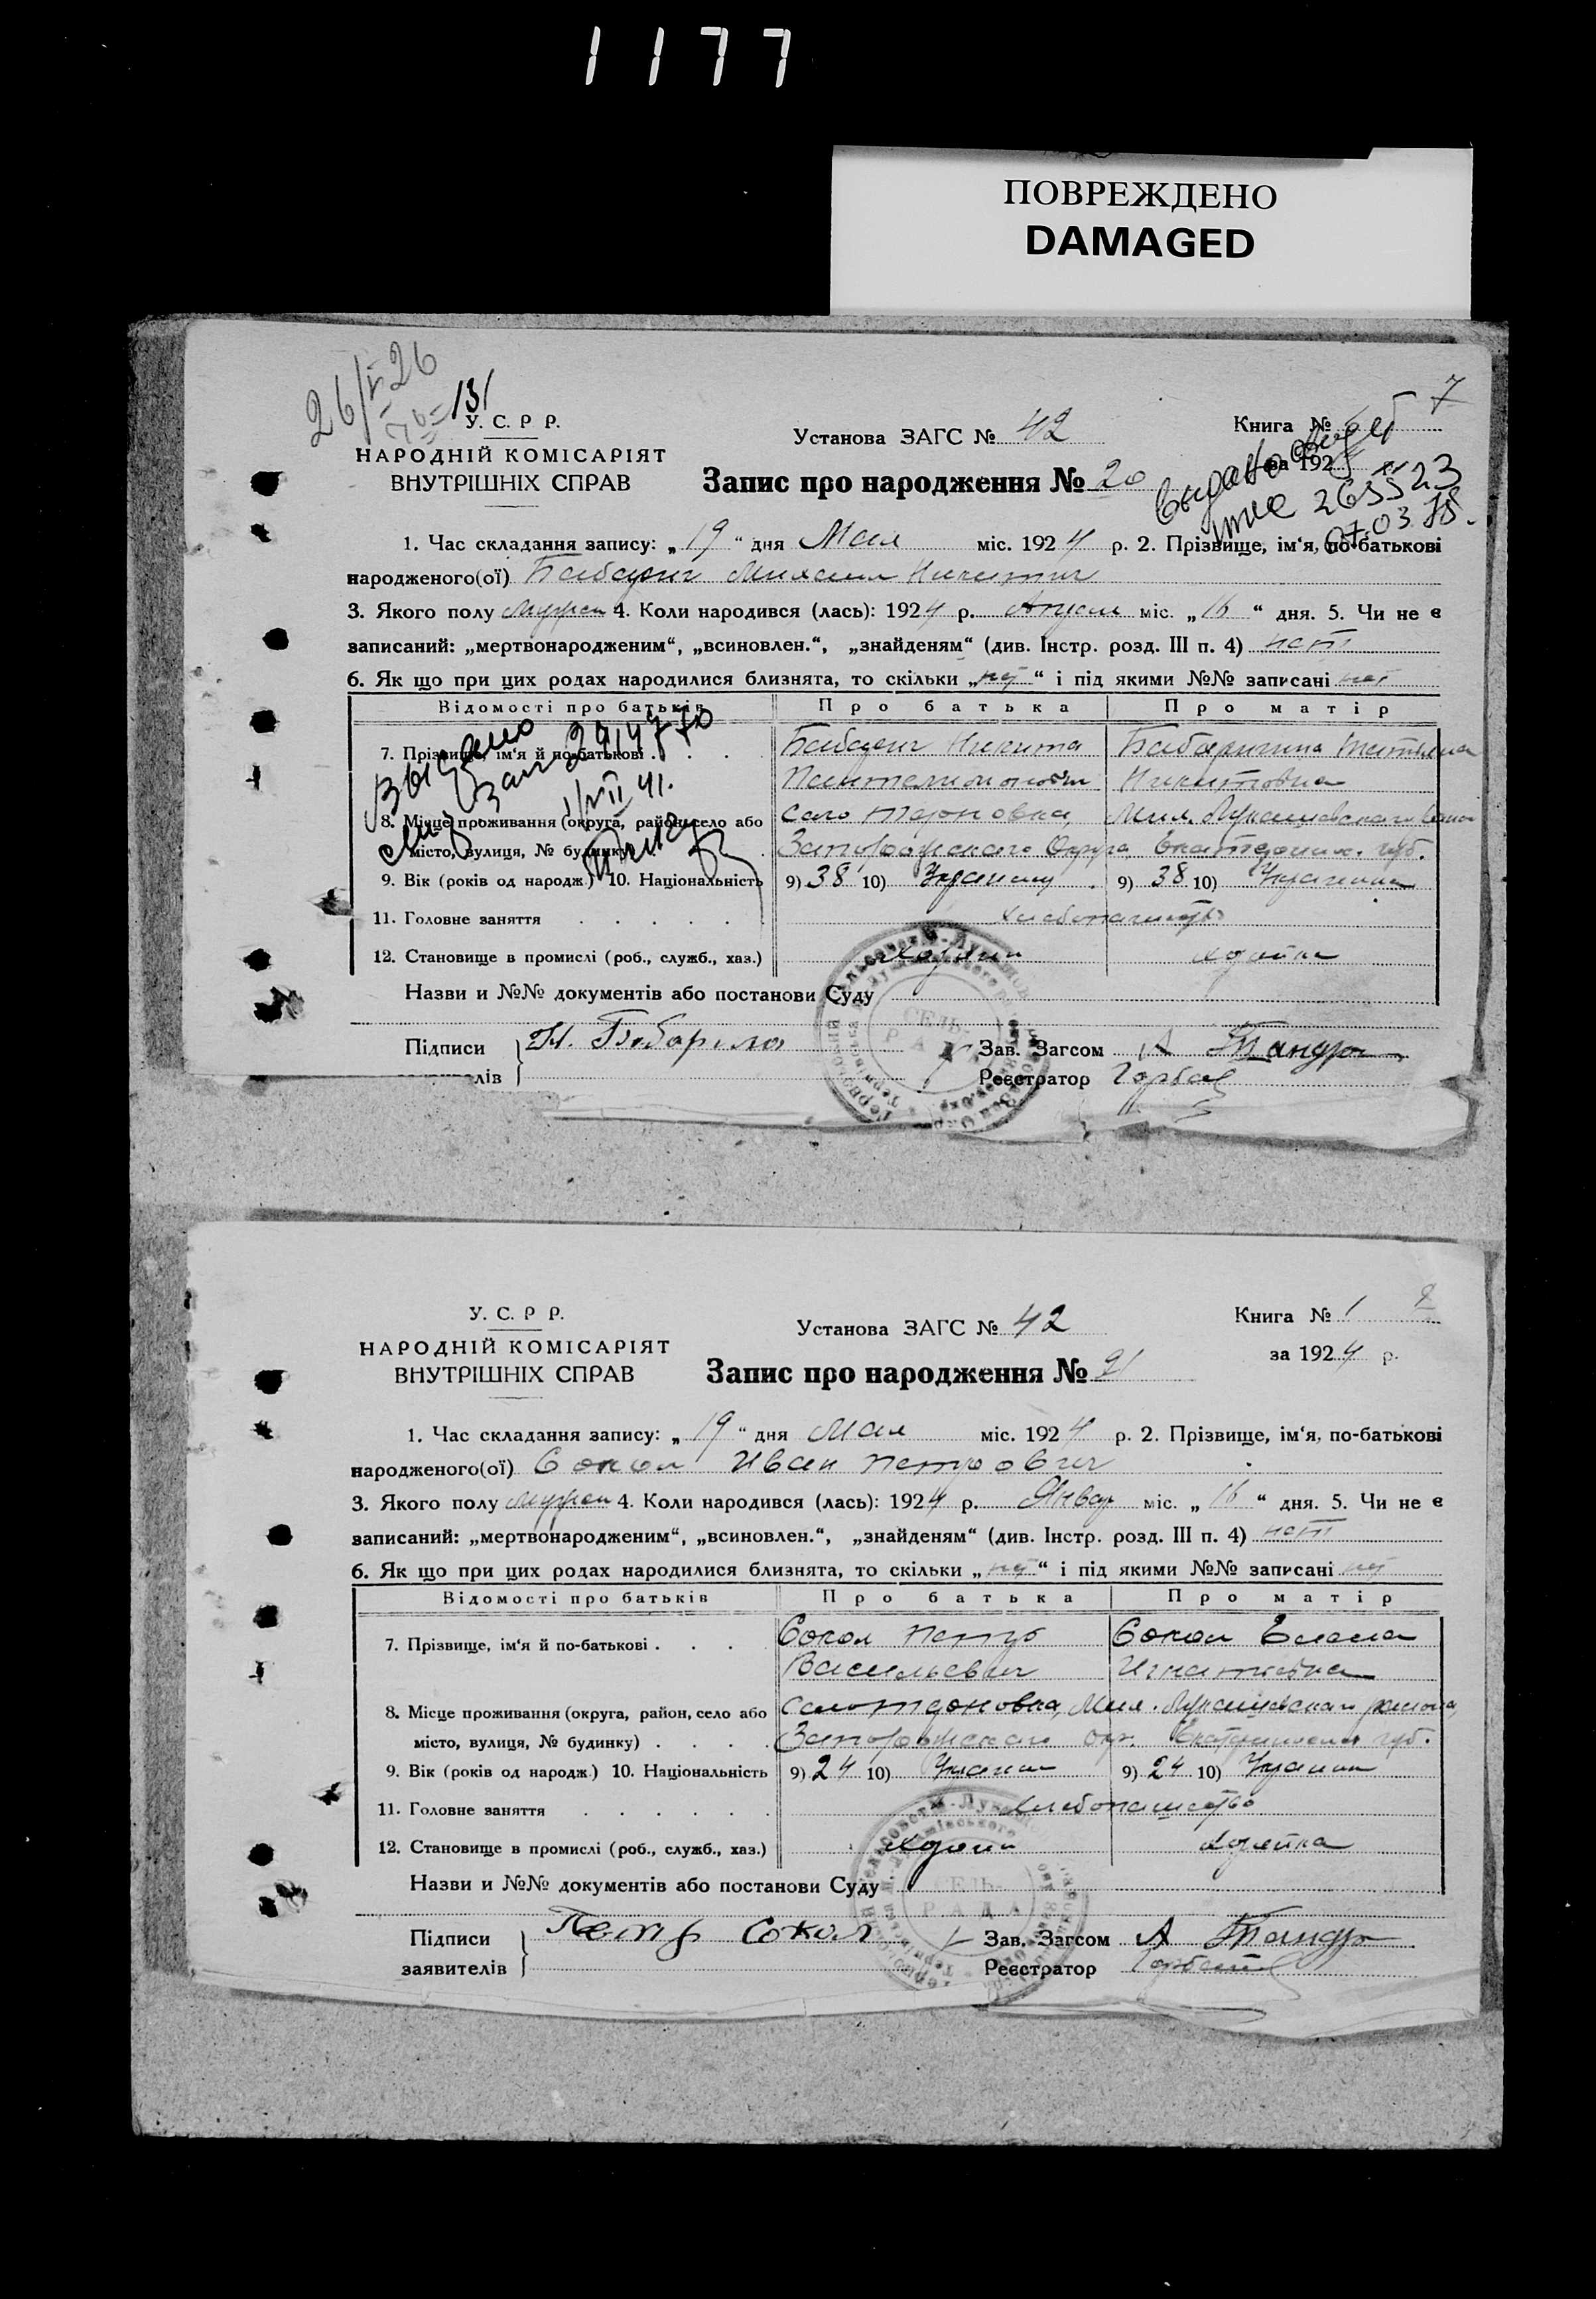 1177
ПОВРЕЖДЕНО
DAMAGED
26/V-26
131
7
У. С. Р Р.
НАРОДНІЙ КОМІСАРІЯТ
ВНУТРІШНІХ СПРАВ
Установа ЗАГС № 42
Книга №
за 192
Запис про народження № 20
265523
07.03.78.
1. Час складання запису: „ 19 “ дня Мая міс. 1924 р. 2. Прізвище, ім‘я, по-батькові
народженого(ої) Михаил Никитич
3. Якого полу Мужск 4. Коли народився (лась): 1924 р. Апрел міс. „ 16 “ дня. 5. Чи не є
записаний: „мертвонародженим“, „всиновлен.“, „знайденям“ (див. Інстр. розд. III п. 4) нет
6. Як що при цих родах народилися близнята, то скільки „ нет “ і під якими №№ записані нет
Відомості про батьків Про батька Про матір
7. Прізвище, ім‘я й по-батькові . . . . Никита Татьяна
Пантелимонович Никитовна
8. Місце проживання (округа, район, село або село Терновка, Мих. Лукашевского
місто, вулиця, № будинку) Запорожского Округа, Екатеринос. губ.
9. Вік (років од народж.) 10. Національність 9) 38 10) Украинец 9) 38 10) Украинка
11. Головне заняття . . . . . . хлебопашество
12. Становище в промислі (роб., служб., хаз.) хозяин хозяйка
Назви и №№ документів або постанови Суду
СЕЛЬ-
РАДА
Підписи Н. Зав. Загсом А
лів Реєстратор
У. С. Р Р.
НАРОДНІЙ КОМІСАРІЯТ
ВНУТРІШНІХ СПРАВ
Установа ЗАГС № 42
Книга № 1 8
за 1924 р.
Запис про народження № 21
1. Час складання запису: „ 19 “ дня Мая міс. 1924 р. 2. Прізвище, ім‘я, по-батькові
народженого(ої) Сокол Иван Петрович
3. Якого полу Мужск 4. Коли народився (лась): 1924 р. Январ міс. „ 16 “ дня. 5. Чи не є
записаний: „мертвонародженим“, „всиновлен.“, „знайденям“ (див. Інстр. розд. III п. 4) нет
6. Як що при цих родах народилися близнята, то скільки „ нет “ і під якими №№ записані нет
Відомості про батьків Про батька Про матір
7. Прізвище, ім‘я й по-батькові . . . . Сокол Петр Сокол Елена
Васильевич Игнатовна
8. Місце проживання (округа, район, село або село Терновка, Мих. Лукашевского района,
місто, вулиця, № будинку) . . . . Запорожского окр. Екатеринослав губ.
9. Вік (років од народж.) 10. Національність 9) 24 10) Украин 9) 24 10) Украин
11. Головне заняття . . . . . . хлебопашество
12. Становище в промислі (роб., служб., хаз.) хозяин хозяйка
Назви и №№ документів або постанови Суду
СЕЛЬ-
РАДА
Підписи Петр Сокол Зав. Загсом А
заявителів Реєстратор